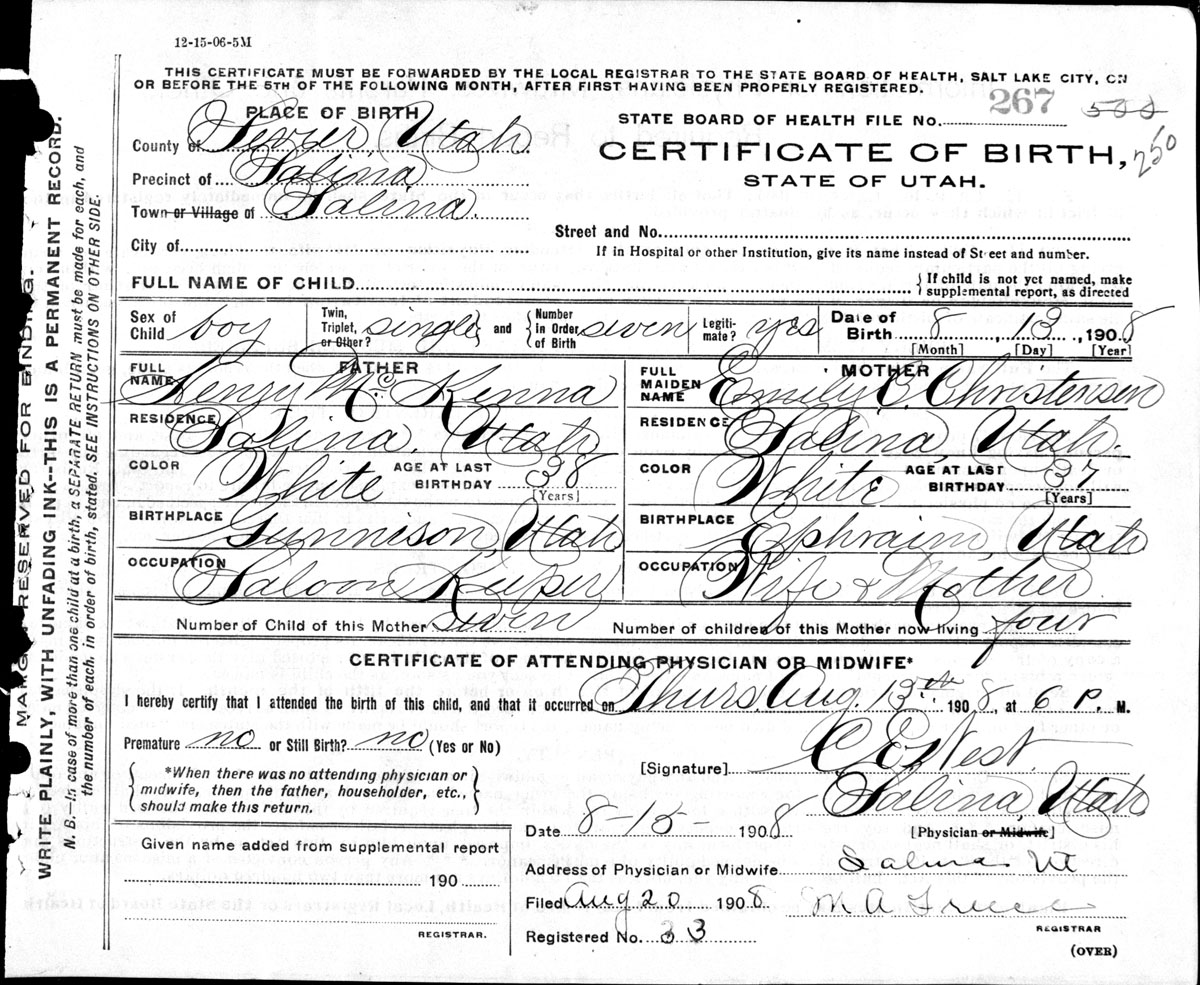 12-15-06-5M
THIS CERTIFICATE MUST BE FORWARDED BY THE LOCAL REGISTRAR TO THE STATE BOARD OF HEALTH, SALT LAKE CITY, ON
OR BEFORE THE 5TH OF THE FOLLOWING MONTH, AFTER FIRST HAVING BEEN PROPERLY REGISTERED.
PLACE OF BIRTH
STATE BOARD OF HEALTH FILE No. 267 500
County of Sevier, Utah
CERTIFICATE OF BIRTH, 250
Precinct of Salina
STATE OF UTAH.
Town or Village of Salina.
Street and No.
City of
If in Hospital or other Institution, give its name instead of Street and number.
FULL NAME OF CHILD
If child is not yet named, make
supplemental report, as directed
Sex of Child boy
Twin, Triplet, or Other? single and
Number In Order of Birth seven
Legitimate? yes
Date of Birth 8, 13, 1908
[Month] [Day] [Year]
FATHER
FULL NAME Henry Mc Kenna
RESIDENCE Salina, Utah
COLOR White AGE AT LAST BIRTHDAY 38
[Years]
BIRTHPLACE Gunnison, Utah
OCCUPATION Saloon Keeper
MOTHER
FULL MAIDEN NAME Emily C. Christensen
RESIDENCE Salina, Utah.
COLOR White AGE AT LAST BIRTHDAY 37
[Years]
BIRTHPLACE Ephraim, Utah
OCCUPATION Wife & Mother
Number of Child of this Mother Seven Number of children of this Mother now living four
CERTIFICATE OF ATTENDING PHYSICIAN OR MIDWIFE*
I hereby certify that I attended the birth of this child, and that it occurred on Thurs. Aug. 13th 1908, at 6 P. M.
Premature no or Still Birth? no (Yes or No)
[Signature] C E West.
Salina, Utah
*When there was no attending physician or
midwife, then the father, householder, etc.,
should make this return.
Date 8-15- 1908 [Physician or Midwife]
Given name added from supplemental report
190
REGISTRAR.
Address of Physician or Midwife Salina Ut
Filed Aug 20 1908 M A
REGISTRAR
Registered No. 33
(OVER)
MARGIN RESERVED FOR BINDING.
WRITE PLAINLY, WITH UNFADING INK--THIS IS A PERMANENT RECORD.
N. B.--In case of more than one child at a birth, a SEPARATE RETURN must be made for each, and
the number of each, in order of birth, stated. SEE INSTRUCTIONS ON OTHER SIDE.